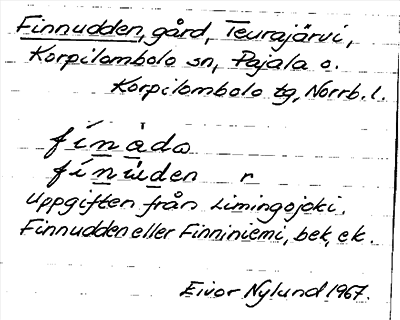 Finnudden, gård, Teurajärvi,
Korpilombolo sn, Pajala o.
Korpilombolo tg, Norrb. l.
fínądα
fíniųden r
Uppgiften från Limingojoki.
Finnudden eller Finniniemi, bek, ek.
Eivor Nylund 1967.